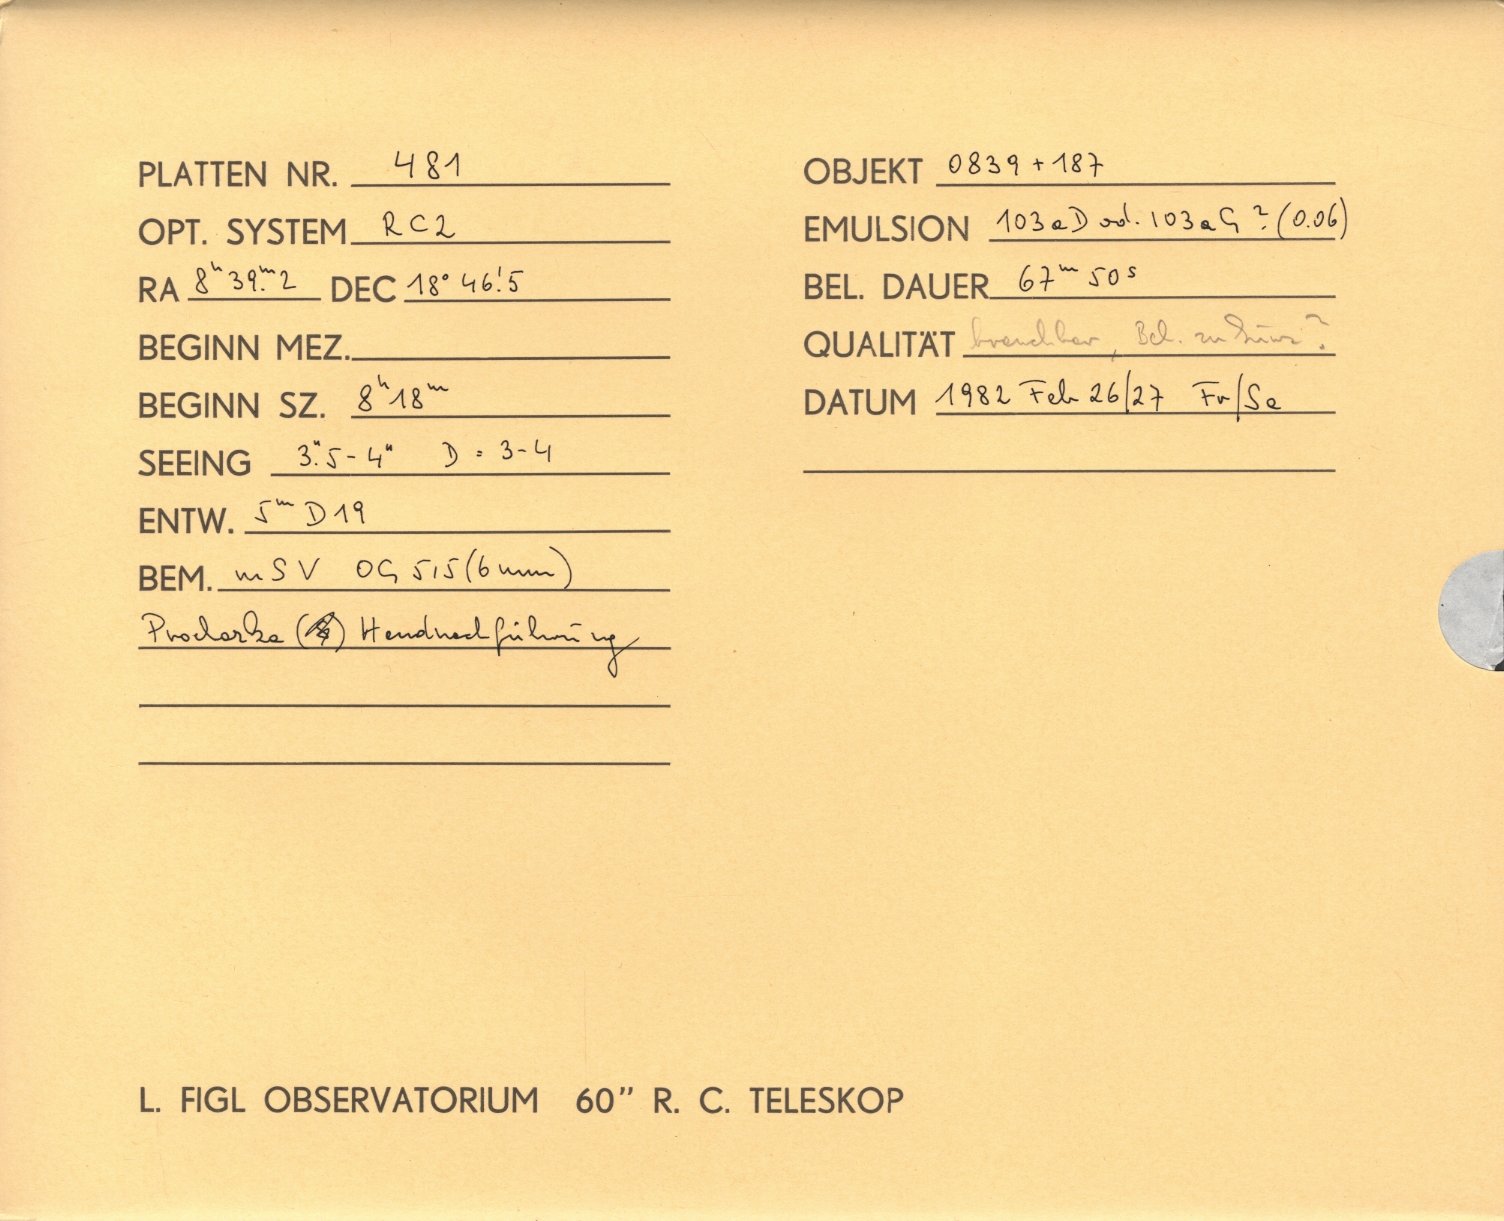 PLATTEN NR. 481
OPT. SYSTEM RC2
RA 8ʰ39ᵐ.2 DEC 18° 46'.5
BEGINN MEZ.
BEGINN SZ. 8ʰ18ᵐ
SEEING 3".5-4" D = 3-4
ENTW. 5ᵐ D19
BEM. mSV OG 515 (6mm)
Handnachführung
OBJEKT 0839+187
EMULSION 103aD od. 103aG ? (0.06)
BEL. DAUER 67ᵐ 50ˢ
QUALITÄT brauchbar, Bel. zu kurz?
DATUM 1982 Feb 26/27 Fr/Sa
L. FIGL OBSERVATORIUM 60" R. C. TELESKOP